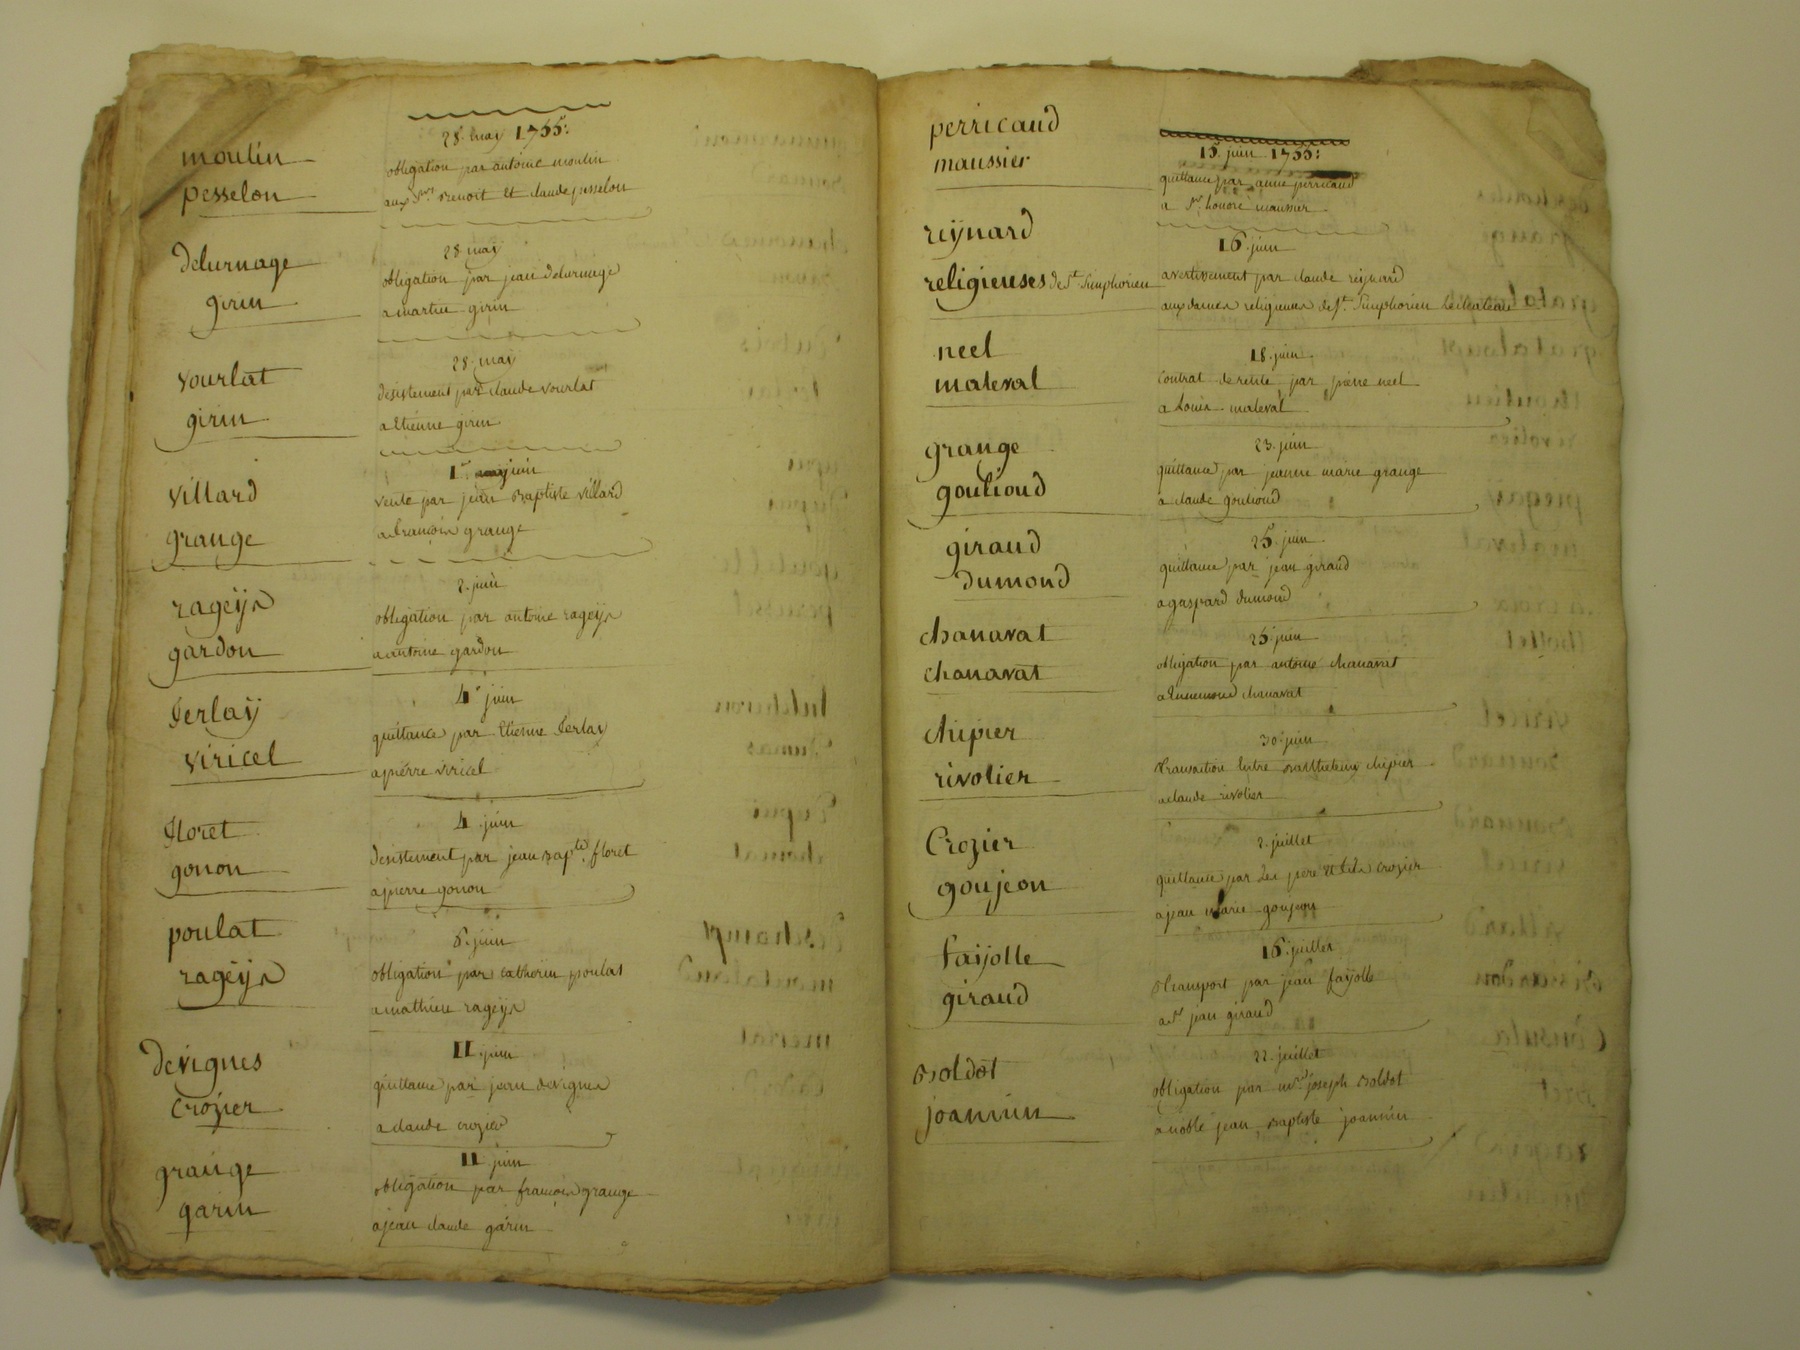 28. may 1755:
moulin
obligation par antoine moulin
pesselon
aux Srs. Benoit et claude pesselon
28 may
delurnage
obligation par jean delurnage
girin
a martin girin
28. may
vourlat
desistement par claude vourlat
girin
a etienne girin
1er juin
villard
vente par jean Baptiste villard
grange
a francois grange
2. juin
rageÿs
obligation par antoine rageÿs
gardon
a antoine gardon
4. juin
ferlaÿ
quittance par Etienne ferlay
viricel
a pierre viricel
4. juin
floret
desistement par jean Bapte. floret
gonon
a pierre gonon
6. juin
poulat
obligation par catherin poulat
rageÿs
a mathieu rageÿs
11. juin
devignes
quittance par jean devignes
crozier
a claude crozier
11 juin
grange
obligation par francois grange
garin
a jean claude garin
perricaud
15. juin 1755:
maussier
quittance par anne perricaud
a Sr. honoré maussier
reÿnard
16. juin
religieuses de St. Simphorien
avertissement par claude reÿnard
aux dames religieuses de St. Simphorien le chateau
neel
18. juin
contrat de rente par pierre neel
maleval
a Louis maleval
23. juin
grange
quittance par jeanne marie grange
goutioud
a claude goutioud
25. juin
giraud
quittance par jean giraud
dumond
a gaspard dumond
chanavat
25. juin
obligation par antoine chanavat
chanavat
a Ennemond chanavat
chipier
30. juin
transaction entre Barthelemy chipier
rivolier
a claude rivolier
2. juillet
Crozier
quittance par les pere et fils crozier
goujeon
a jean marie goujeon
16. juillet
faÿolle
transport par jean faÿolle
giraud
a Sr jean giraud
22. juillet
Boldot
obligation par me. joseph Boldot
joannin
a noble jean Baptiste joannin